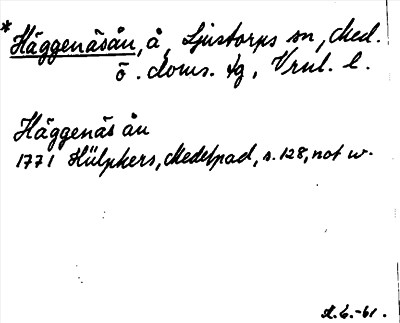 *Häggenåsån, å, Ljustorps sn, Med.
ö. doms. tg, Vrnl. l.
Häggenås ån
1771 Hülphers, Medelpad, s. 128, not w.